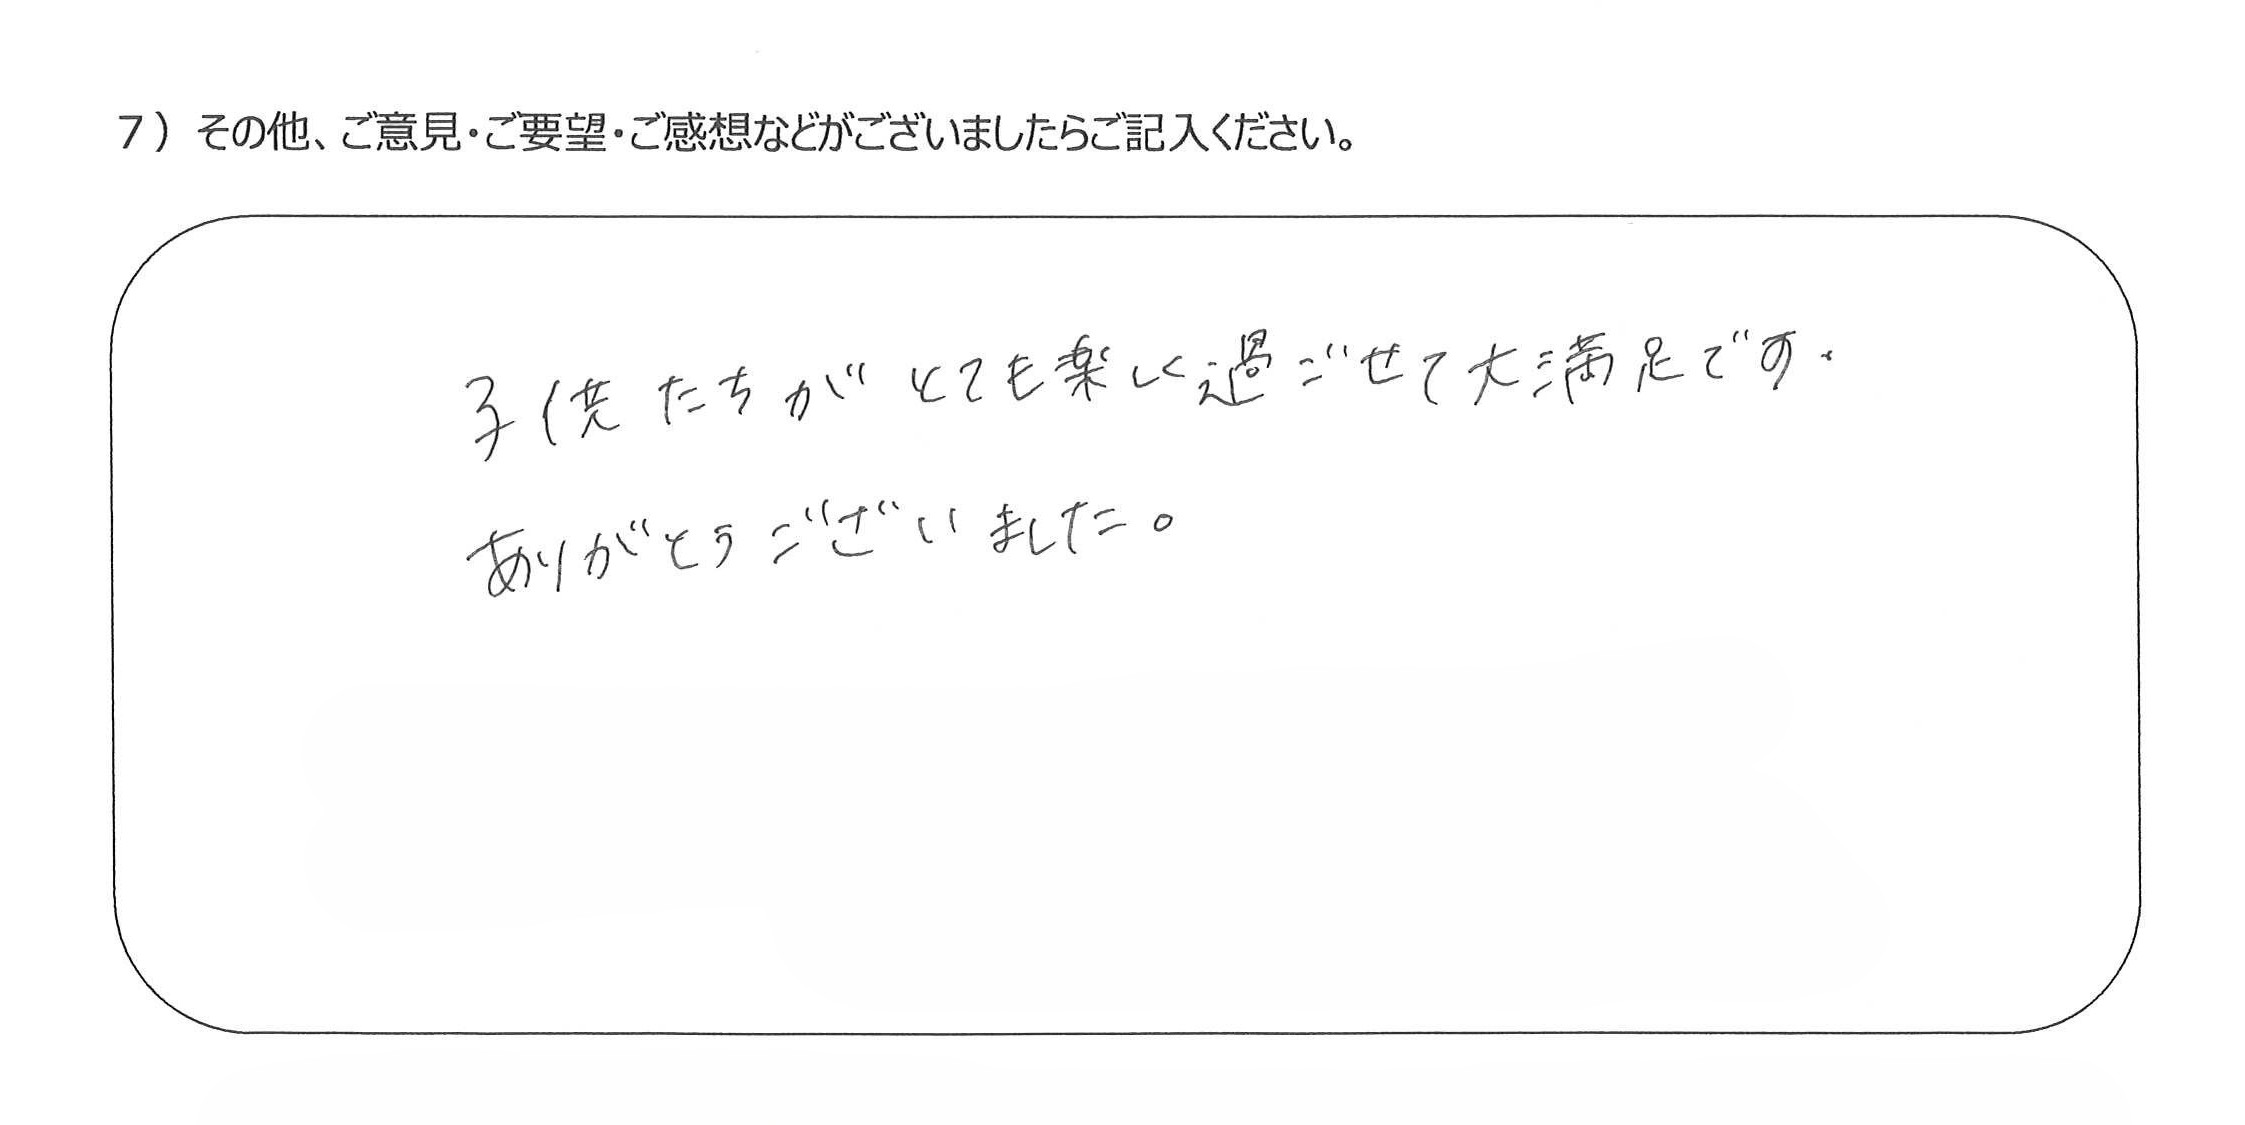 ７）その他、ご意見・ご要望・ご感想などがございましたらご記入ください。
子供たちがとても楽しく過ごせて大満足です。
ありがとうございました。